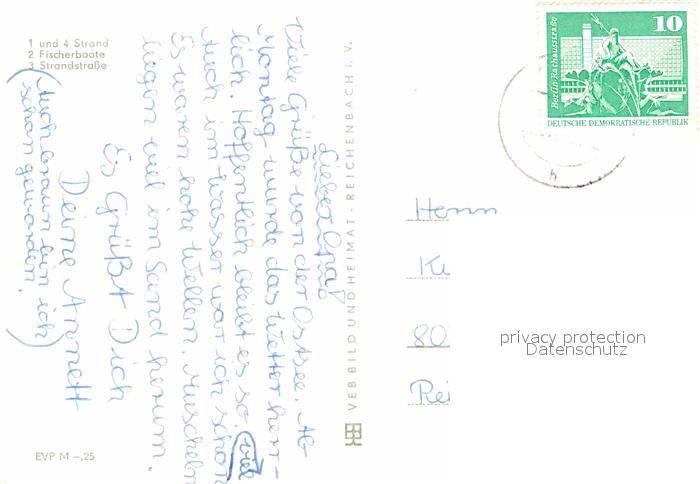 1 und 4 Strand
2 Fischerboote
3 Strandstraße
Lieber Opa!
Viele Grüße von der Ostsee. Ab
Montag wurde das Wetter herr-
lich. Hoffentlich bleibt es so.
Auch im Wasser war ich schon viel
Es waren hohe Wellen. Muscheln
liegen viel im Sand herum.
Es Grüßt Dich
Deine Annett
(Auch braun bin ich
schon geworden.)
EVP M –,25
VEB BILD UND HEIMAT · REICHENBACH I. V.
10
Berlin Rathausstraße
DEUTSCHE DEMOKRATISCHE REPUBLIK
h
Herrn
80
privacy protection
Datenschutz